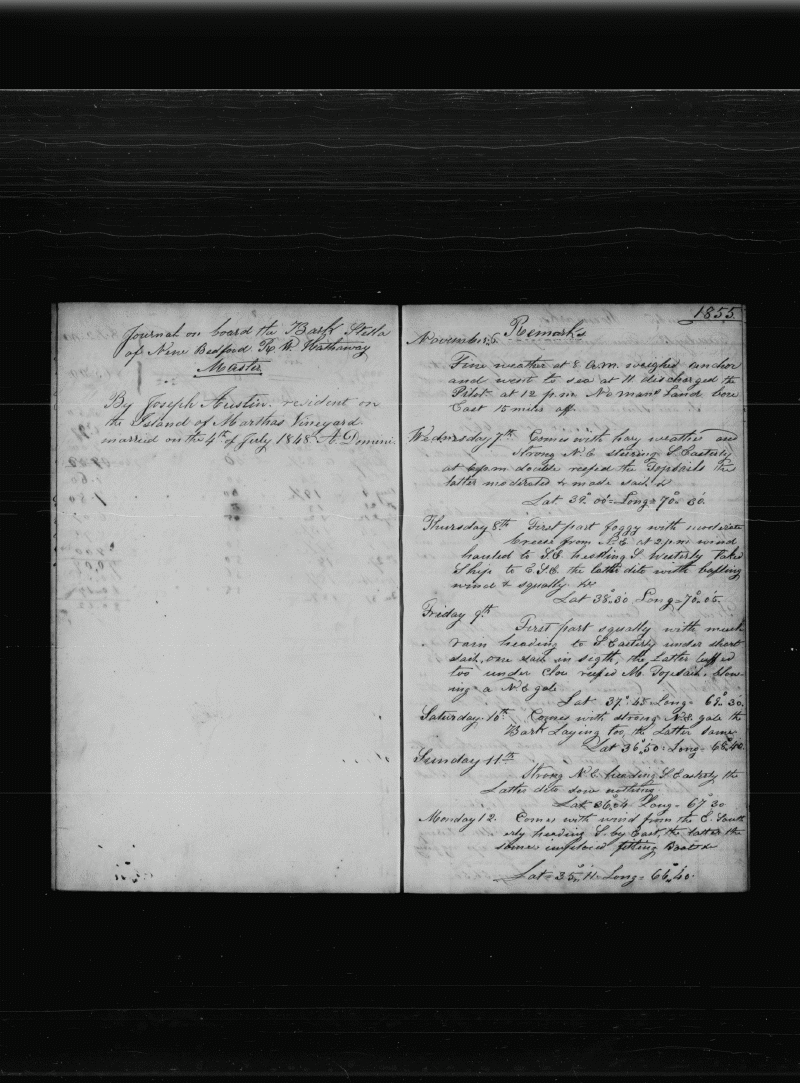 Journal on board the Bark Stella
of New Bedford R. W. Hathaway
Master
By Joseph Austin. resident on
the Island of Marthas Vineyard
married on the 4th of July 1848 A. Domini.
1855
Remarks
November 6
Fine weather at 8 a.m. weighed anchor
and went to sea at 11 discharged the
Pilot. at 12 p.m No mans Land bore
East 15 miles off.
Wednesday 7th Comes with hazy weather and
Strong N.E. steering S. Easterly
at 6 p.m double reefed the Topsails the
latter moderated & made sail &
Lat 39° 00' Long = 70° 30.
Thursday 8th First part foggy with moderate
breeze from N.E. at 2 p.m wind
hauled to S.E. heading S. Westerly Tacked
Ship to E.S.E. the latter dito with baffling
wind & squally &c
Lat 38.30 Long = 70.05.
Friday 9th
First part squally with much
rain heading to S. Easterly under short
sail, one sail in sigth, the Latter luffed
too under Close reefed M. Topsail. blow-
ing a N E gale
Lat 37° 45 Long = 69° 30.
Saturday 10th Comes with strong N.E. gale the
Bark Laying too, the Latter same
Lat 36°50' Long = 68°40.
Sunday 11th
Strong N.E. heading S. Easterly the
Latter dito saw nothing
Lat. 36.04. Long = 67° 30
Monday 12. Comes with wind from the E. South
erly heading S. by East, the latter the
same imployed fitting Boats &
Lat = 35° 11. Long = 66°40.